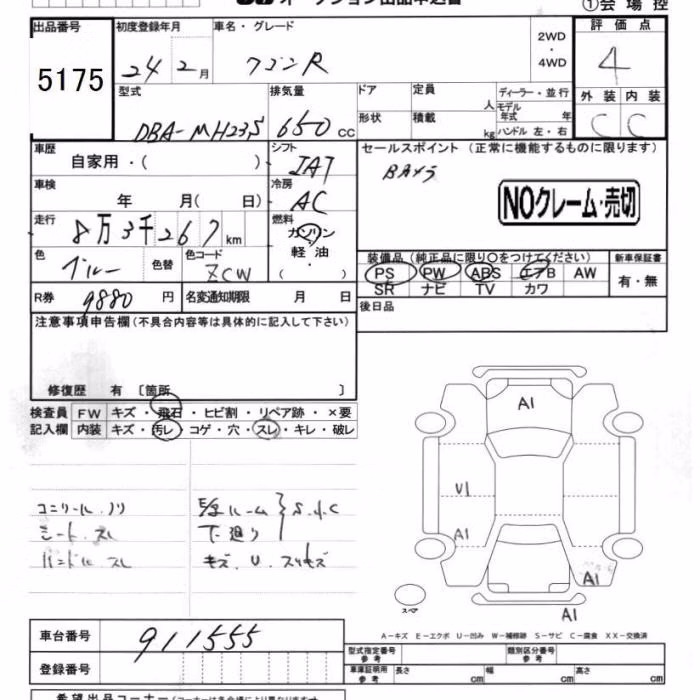 オークション出品申込書
①会場控
出品番号 初度登録年月 車名・グレード 評価点
5175 24 2月 ワゴンR 2WD・4WD 4
型式 排気量 ドア 定員 人 ディーラー・並行 外装 内装
DBA-MH23S 650cc 形状 積載 kg モデル年式 年 ハンドル 左・右 C C
車歴 シフト セールスポイント(正常に機能するものに限ります)
自家用・( ) IAT
車検 冷房
年 月( 日) AC NOクレーム・売切
走行 燃料
8万3千267km ガソリン
軽油
・( )
装備品(純正品に限り〇をつけてください) 新車保証書
色 色替 色コード PS PW ABS エアB AW 有・無
ブルー ZCW SR ナビ TV カワ
R券 9880円 名変通知期限 月 日 後日品
注意事項申告欄(不具合内容等は具体的に記入して下さい)
修復歴 有 〔箇所 〕
検査員 FW キズ・飛石・ヒビ割・リペア跡・×要
記入欄 内装 キズ・汚レ・コゲ・穴・スレ・キレ・破レ
A1
U1
A1
A1
A1
スペア
シート.スレ 下廻り S.小C
ハンドル スレ キズ.U.スリキズ
A-キズ E-エクボ U-凹み W-補修跡 S-サビ C-腐食 XX-交換済
車台番号 911555
登録番号
型式指定番号 参考 類別区分番号 参考
車庫証明用 参考 長さ cm 幅 cm 高さ cm
希望出品コーナー